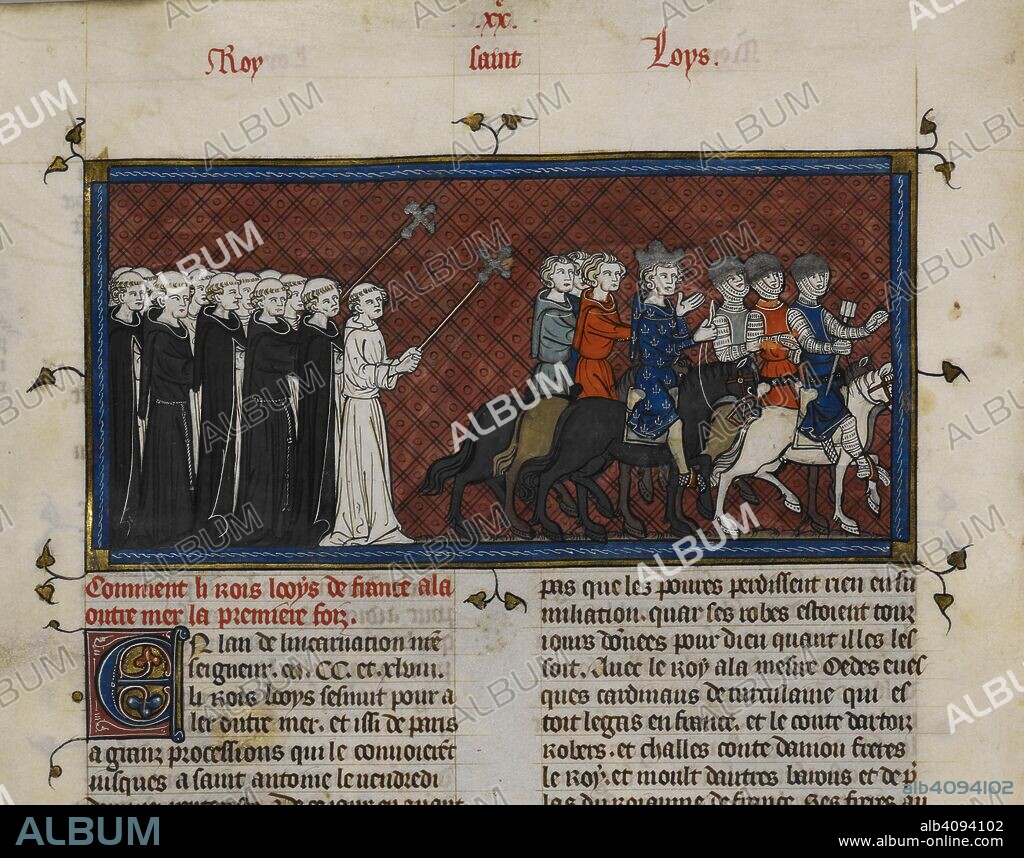 xx.
Roy saint Loys.
Comment li Rois looys de france ala
outre mer la premiere foiz.
En lan de lincarnation nre
seigneur. m. CC. et. xlviii.
li Rois looys sesmut pour a
ler outre mer. et issi de paris
a granz processions qui le convoierent
iusques a saint antoine le vendredi
pas que les poures perdissent rien en su
miliation. quar ses robes estoient touz
iours donnees pour dieu quant il les les
soit. Avec le Roy ala mesire Oedes eves
ques cardinaus de turculaine qui es
toit legas en france. et le conte dartoiz
Robers. et challes conte daniou freres
le Roy. et moult dautres barons et de p
las du Roiaume de france. Ses freres au
ALBUM
alb4094102
ALBUM
alb4094102
album-online.com